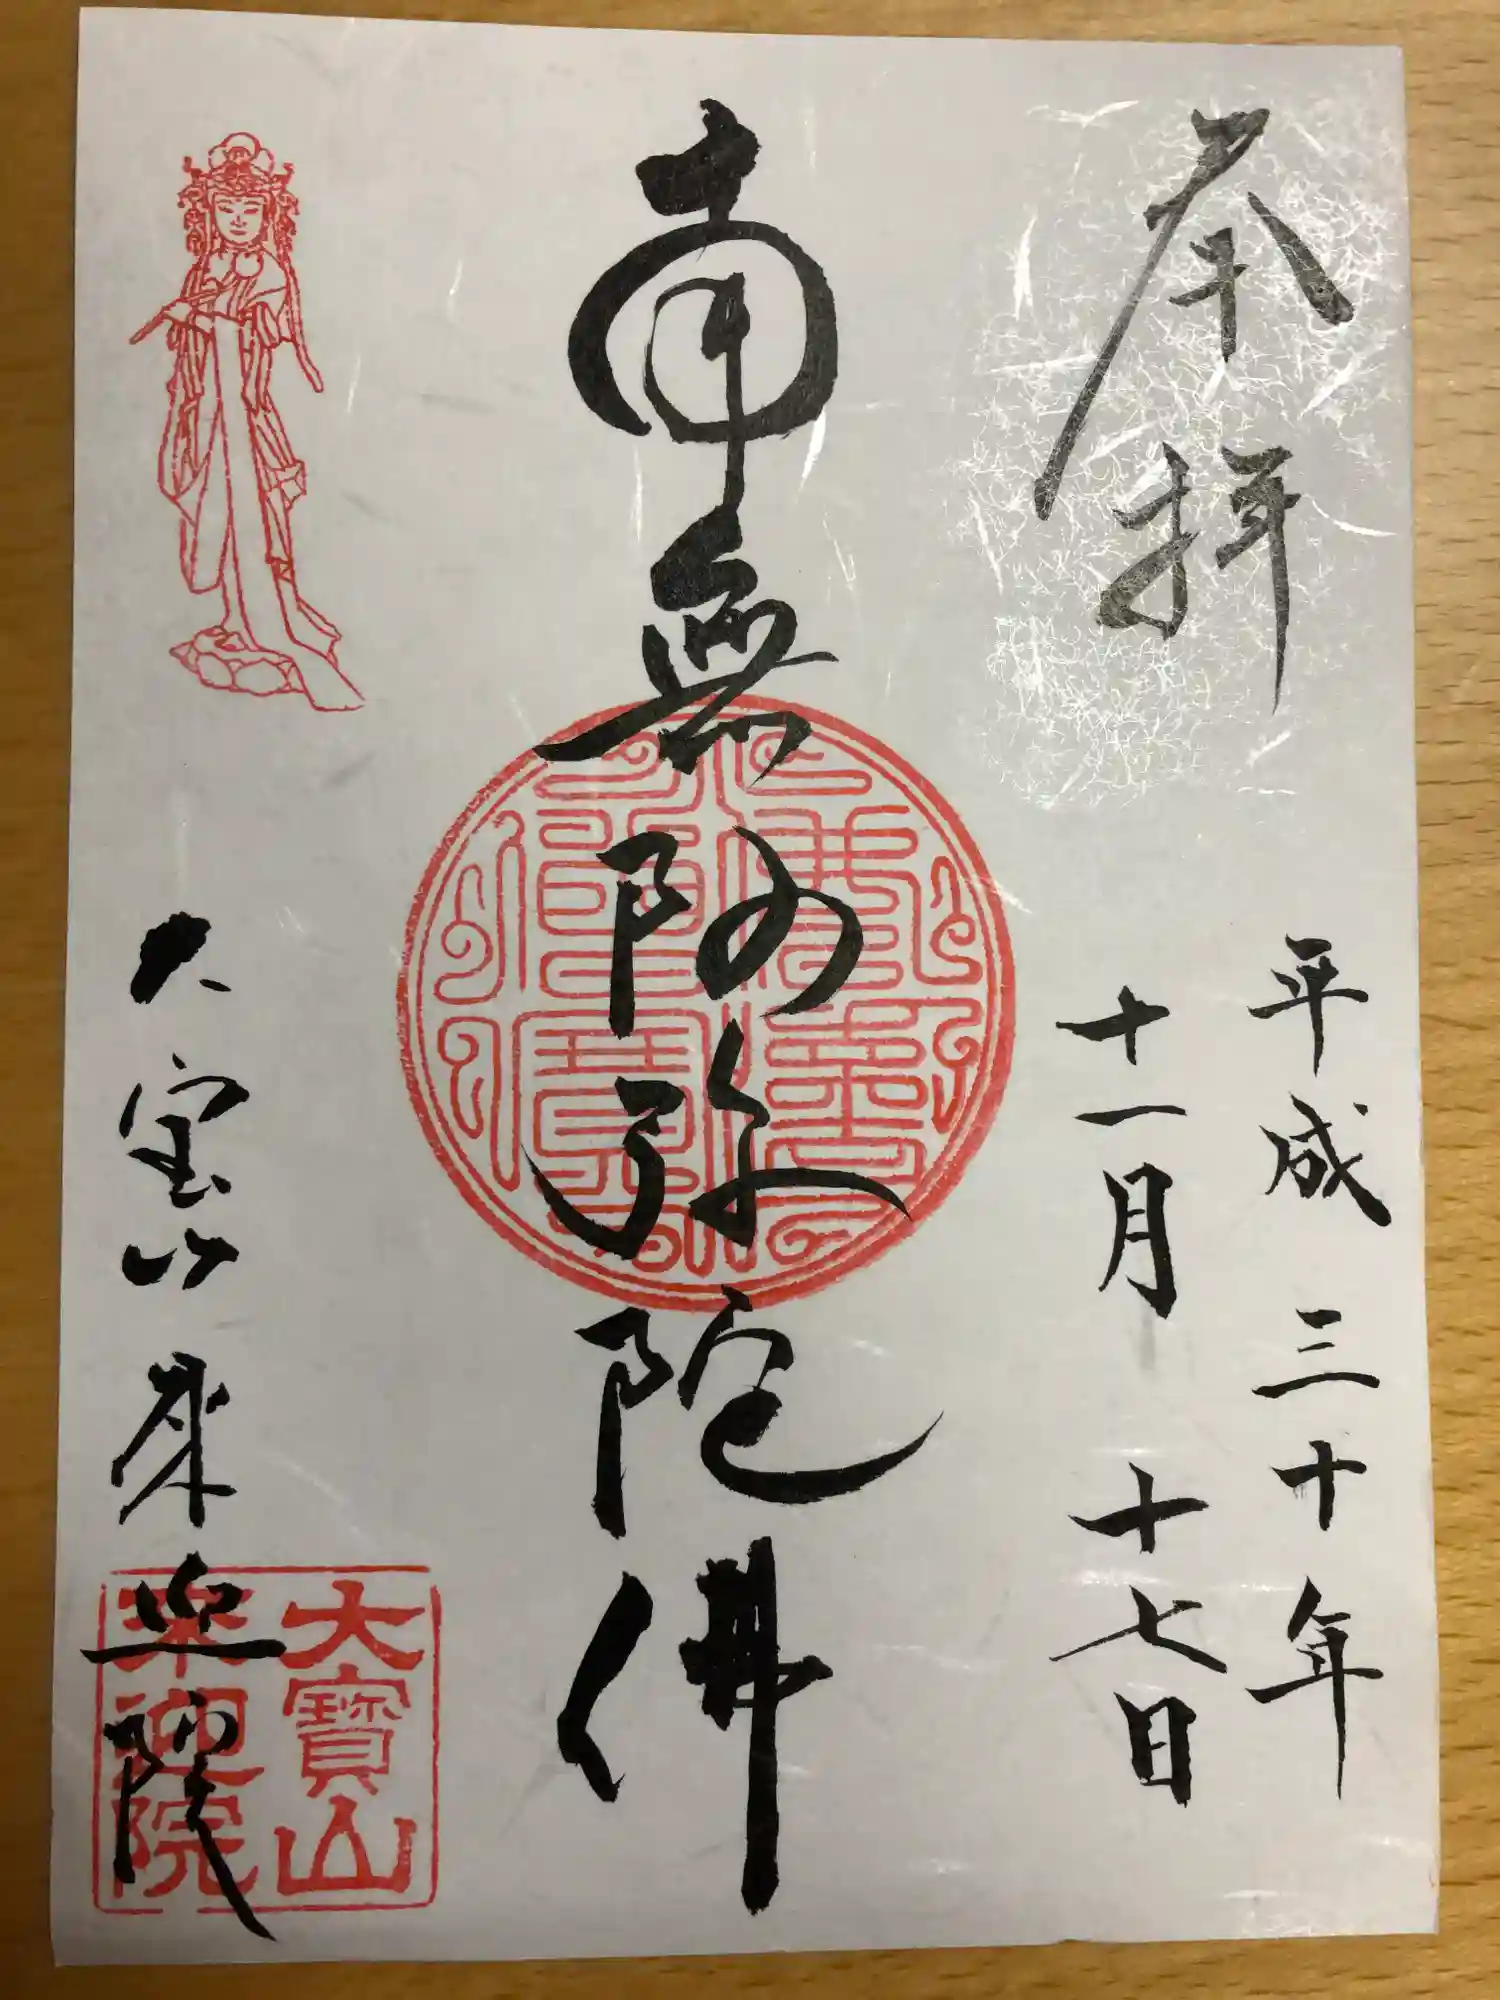 奉拝
平成三十年
十一月十七日
南無阿弥陀佛
大宝山来迎院
大寶山
来迎院